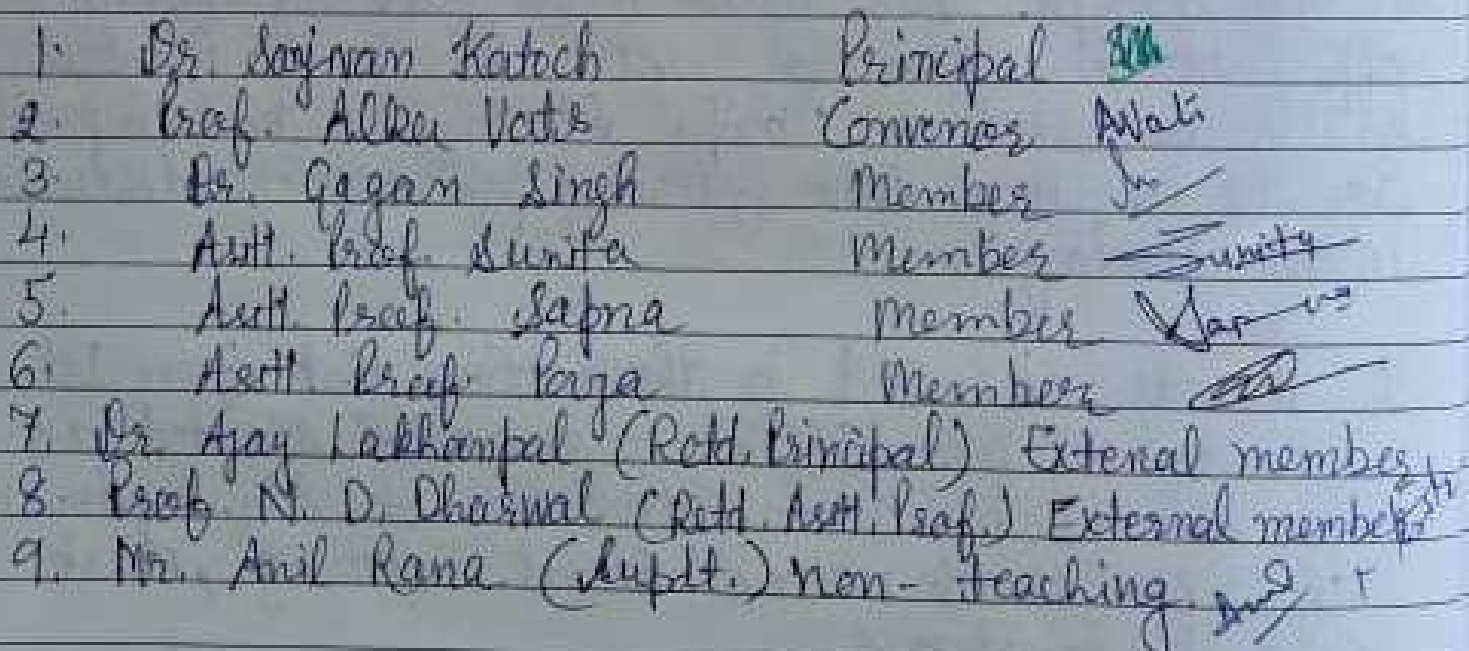 1. Dr. Sanjvan Katoch Principal
2. Prof. Alka Vats Convenor AVats
3. Dr. Gagan Singh Member
4. Astt. Prof. Sunita Member Sunita
5. Astt. Prof. Sapna Member Sapna
6. Astt. Prof. Member
7. Dr Ajay Lakhanpal (Retd. Principal) Extenal member
8. Prof. N. D. Dharwal (Retd. Astt. Prof.) External member
9. Mr. Anil Rana (Supdt.) non-teaching.